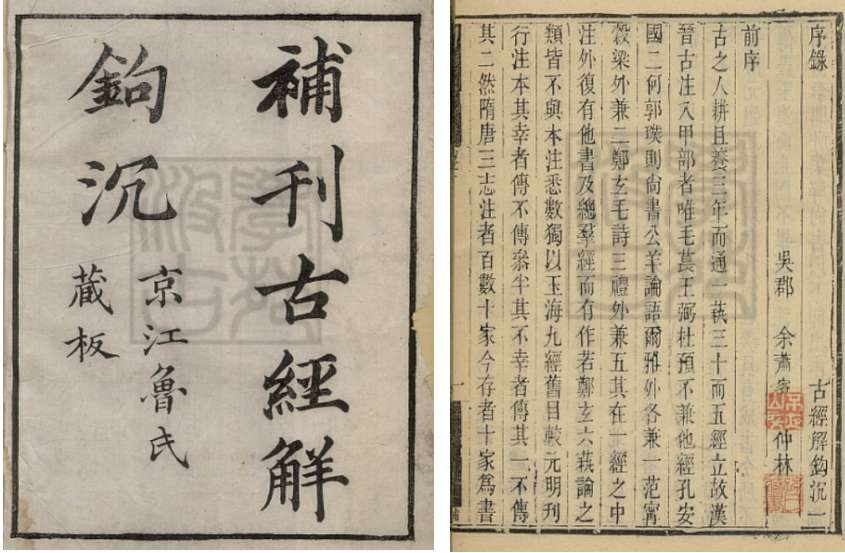 補刊古經解
鉤沉
京江魯氏
藏板
序錄 古經解鉤沉一
吳郡 余蕭客 仲林
前序
古之人耕且養三年而通一蓺三十而五經立故漢
晉古注入甲部者唯毛萇王弼杜預不兼他經孔安
國二何郭璞則尚書公羊論語爾雅外各兼一范甯
穀梁外兼二鄭玄毛詩三禮外兼五其在一經之中
注外復有他書及總羣經而有作若鄭玄六蓺論之
類皆不與本注悉數獨以玉海九經舊目較元明刊
行注本其幸者傳不傳叅半其不幸者傳其一不傳
其二然隋唐三志注者百數十家今存者十家爲書